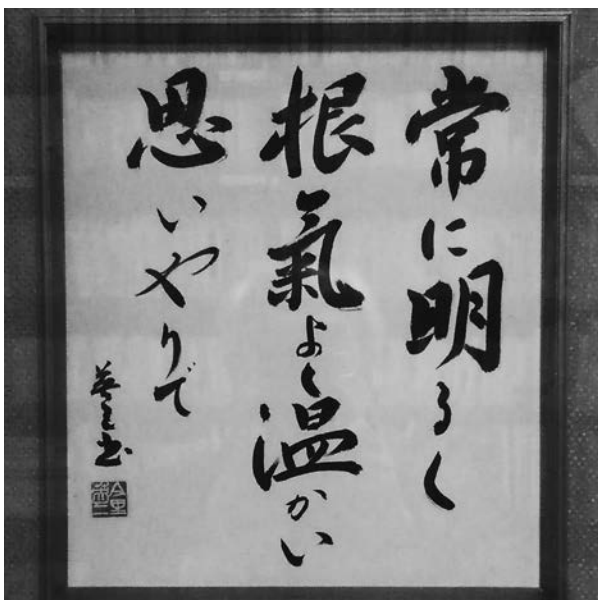 常に明るく
根氣よく温かい
思いやりで